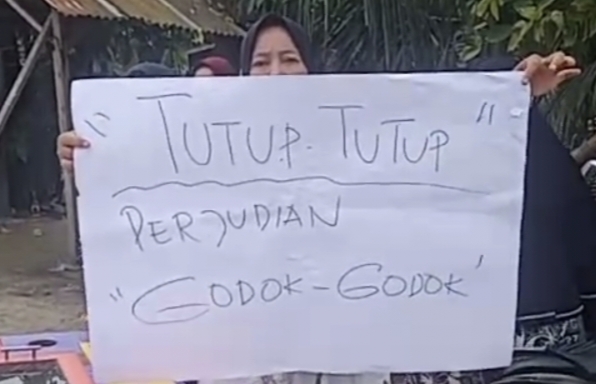 "TUTUP. TUTUP"
PERJUDIAN
"GODOK-GODOK'